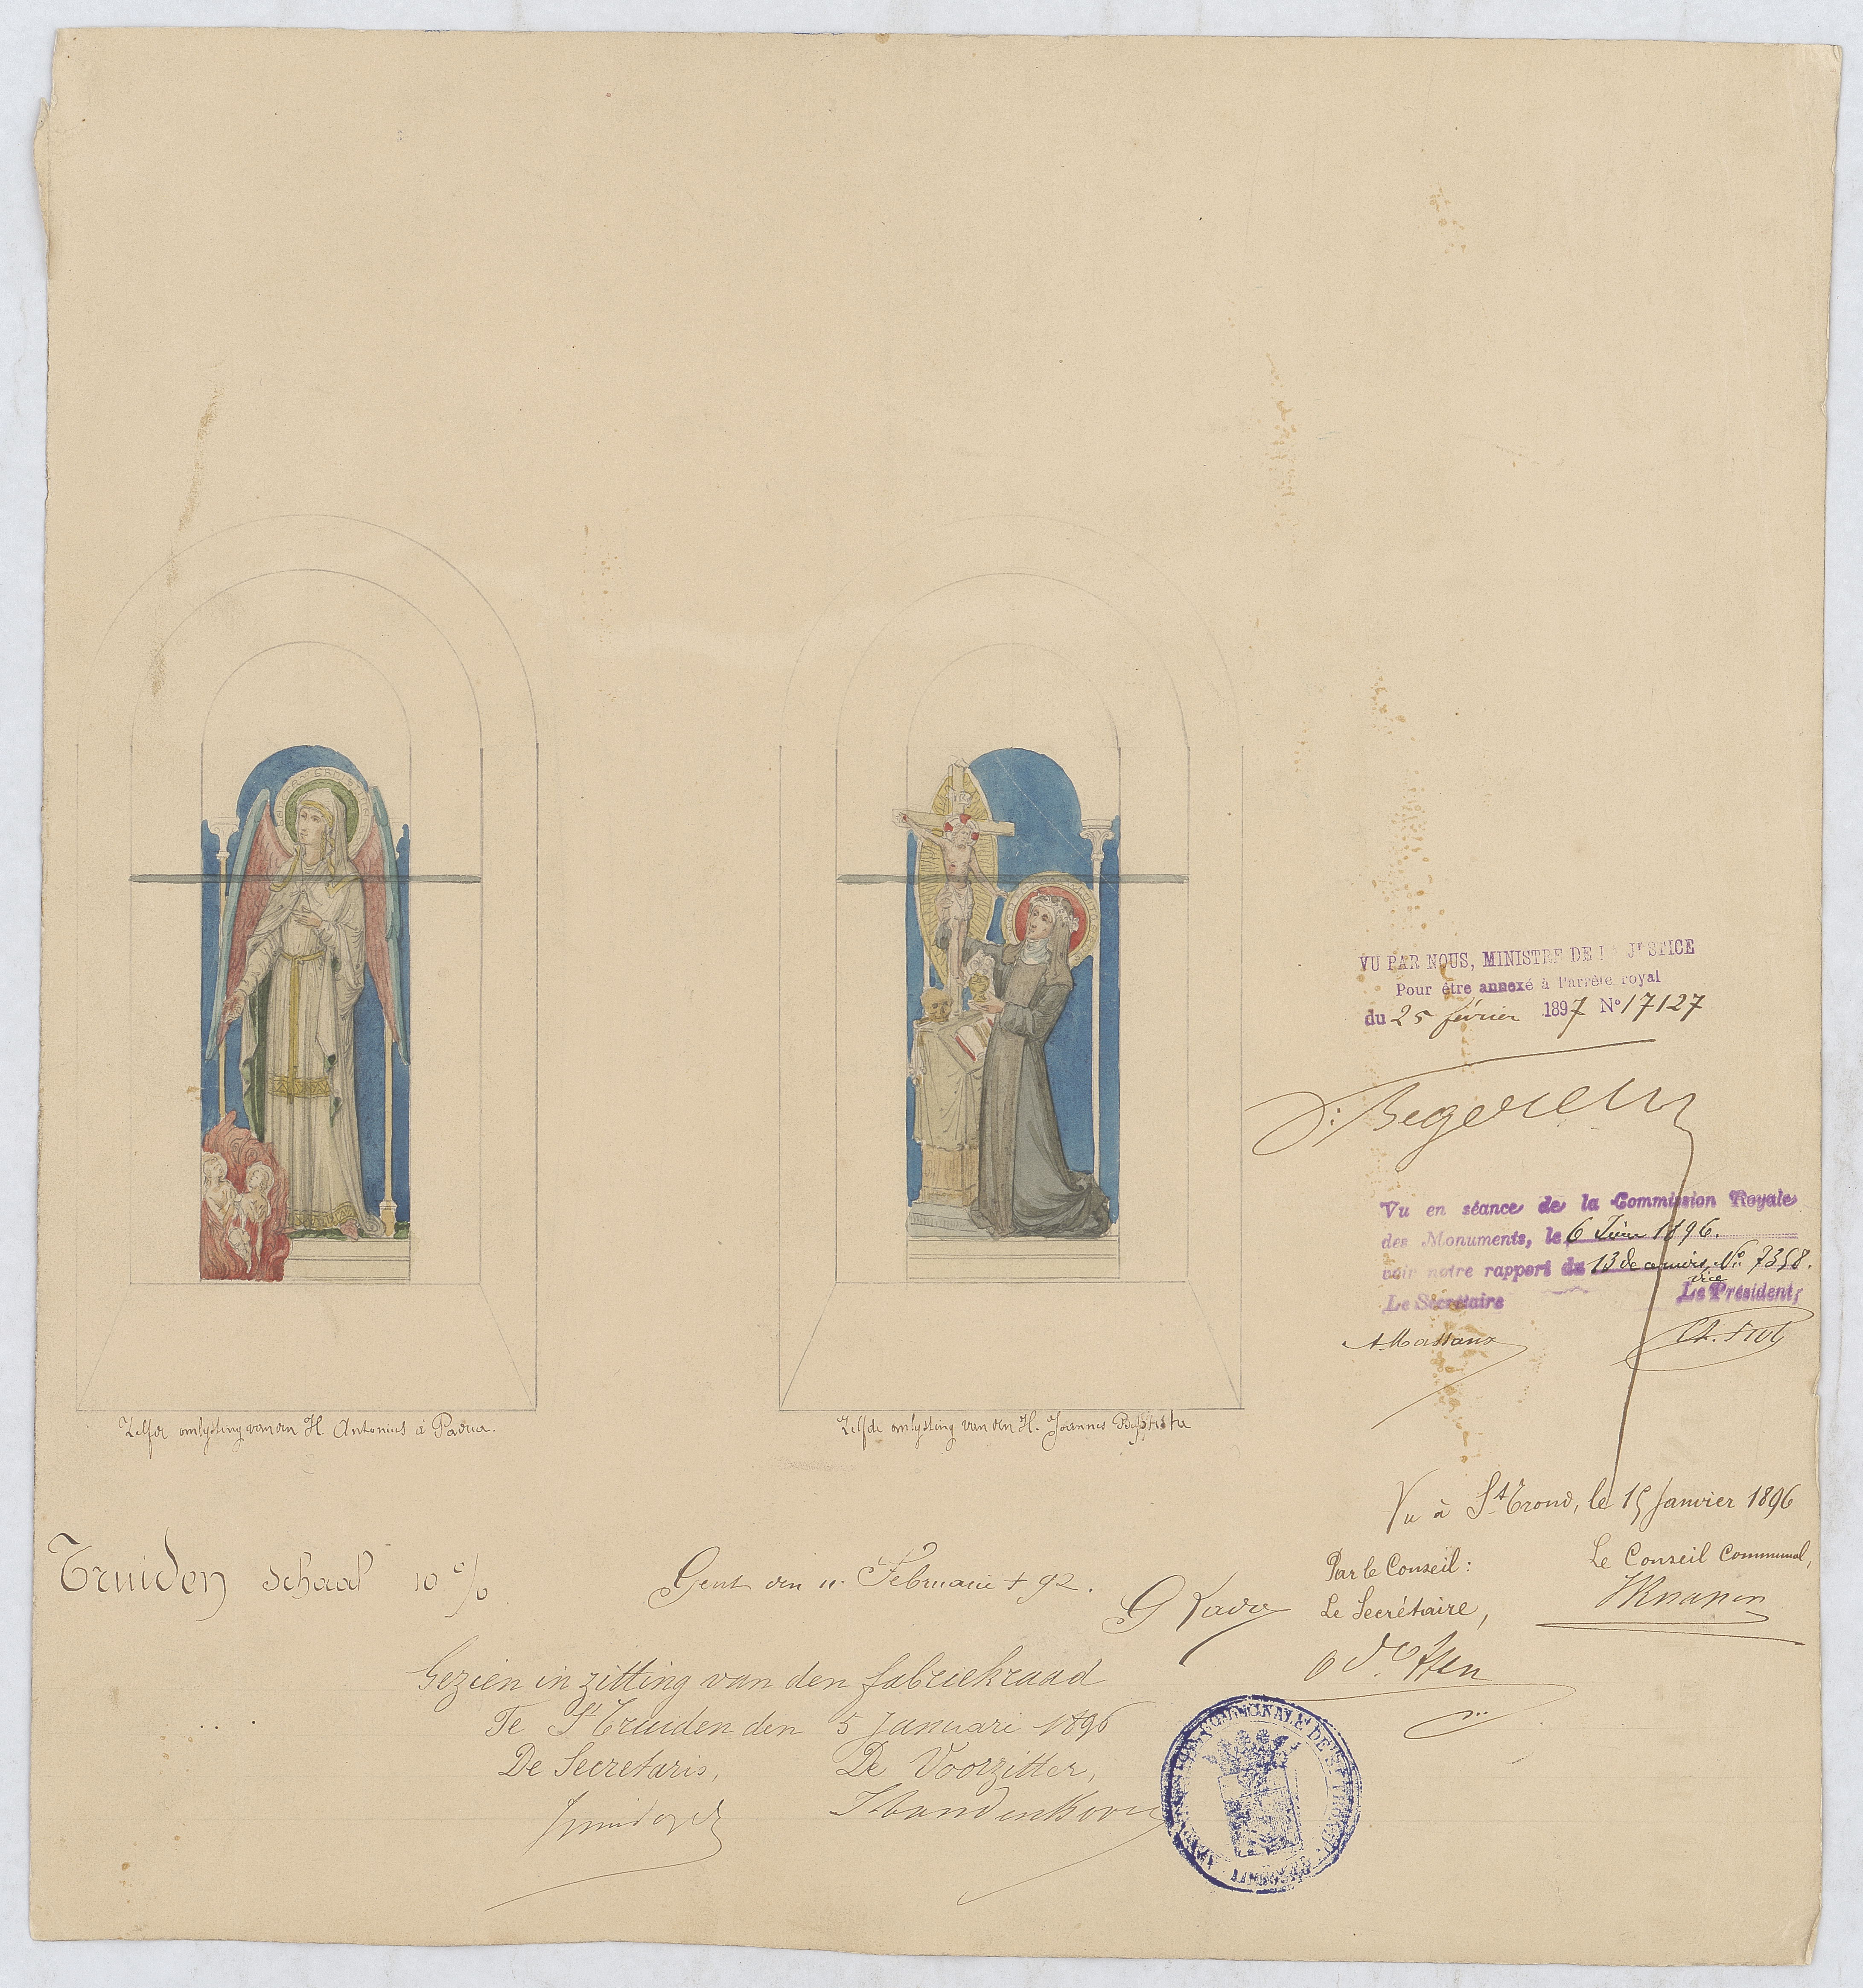 VU PAR NOUS, MINISTRE DE LA JUSTICE
Pour être annexé à l'arrêté royal
du 25 février 1897 N° 17127
V. Begerem
Vu en séance de la Commission Royale
des Monuments, le 6 Juin 1896.
voir notre rapport du 13 de ce mois N° 7358.
Le Secrétaire
vice
Le Président,
A. Massaux
Zelfde omlysting van den H. Antonius à Padua.
Zelfde omlysting van den H. Joannes Baptista
Vu à St. Trond, le 15 Janvier 1896
Par le Conseil:
Le Conseil Communal,
Le Secrétaire,
Truiden schaal 10 %
Gent den 11 Februarii + 92.
G
Gezien in zitting van den fabriekraad
Te St Truiden den 5 Januari 1896
De Secretaris,
De Voorzitter,
COMMUNALE DE ST TROND
LIMBOURG